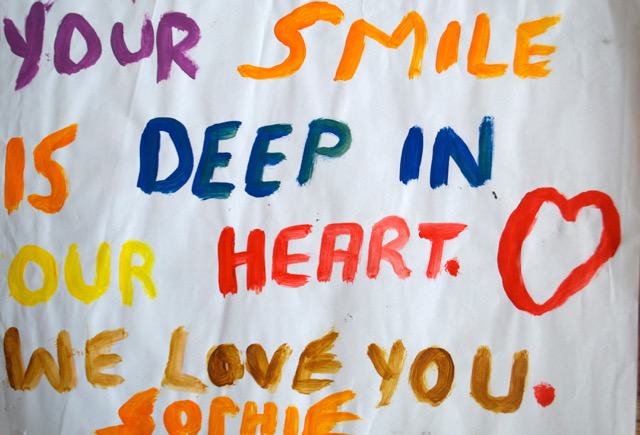 YOUR SMILE
IS DEEP IN
OUR HEART.
WE LOVE YOU.
SOPHIE